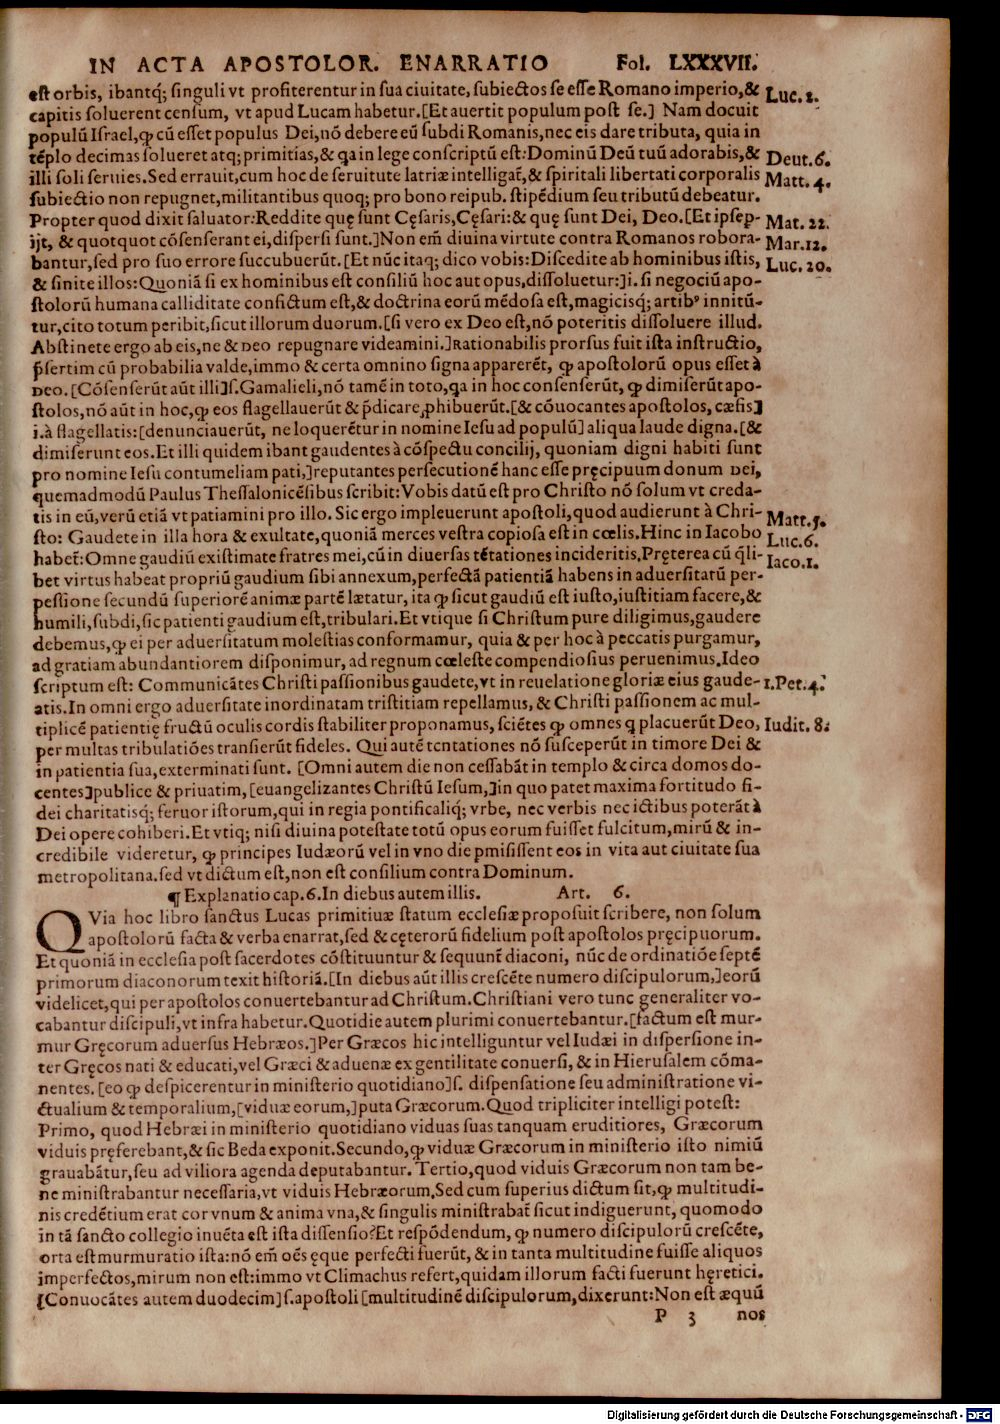 IN ACTA APOSTOLOR. ENARRATIO Fol. LXXXVII.
est orbis, ibantq́; singuli vt profiterentur in sua ciuitate, subiectos se esse Romano imperio, &
capitis soluerent censum, vt apud Lucam habetur. [Et auertit populum post se.] Nam docuit
populū Israel, ꝙ cū esset populus Dei, nō debere eū subdi Romanis, nec eis dare tributa, quia in
tēplo decimas solueret atq; primitias, & qa in lege conscriptū est: Dominū Deū tuū adorabis, &
illi soli seruies. Sed errauit, cum hoc de seruitute latriæ intelligat̄, & spiritali libertati corporalis
subiectio non repugnet, militantibus quoq; pro bono reipub. stipēdium seu tributū debeatur.
Propter quod dixit saluator: Reddite quę sunt Cęsaris, Cęsari: & quę sunt Dei, Deo. [Et ipse p-
ijt, & quotquot cōsenserant ei, dispersi sunt.] Non em̄ diuina virtute contra Romanos robora-
bantur, sed pro suo errore succubuerūt. [Et nūc itaq; dico vobis: Discedite ab hominibus istis,
& sinite illos: Quoniā si ex hominibus est consiliū hoc aut opus, dissoluetur:] i. si negociū apo-
stolorū humana calliditate confictum est, & doctrina eorū mēdosa est, magicisq́; artibꝰ innitū-
tur, cito totum peribit, sicut illorum duorum. [si vero ex Deo est, nō poteritis dissoluere illud.
Abstinete ergo ab eis, ne & DEO repugnare videamini.] Rationabilis prorsus fuit ista instructio,
p̄sertim cū probabilia valde, immo & certa omnino signa apparerēt, ꝙ apostolorū opus esset à
DEO. [Cōsenserūt aūt illi] s. Gamalieli, nō tamē in toto, qa in hoc consenserūt, ꝙ dimiserūt apo-
stolos, nō aūt in hoc, ꝙ eos flagellauerūt & p̄dicare ꝓhibuerūt. [& cōuocantes apostolos, cæsis]
i. à flagellatis: [denunciauerūt, ne loquerētur in nomine Iesu ad populū] aliqua laude digna. [&
dimiserunt eos. Et illi quidem ibant gaudentes à cōspectu concilij, quoniam digni habiti sunt
pro nomine Iesu contumeliam pati,] reputantes persecutionē hanc esse pręcipuum donum DEI,
quemadmodū Paulus Thessalonicēsibus scribit: Vobis datū est pro Christo nō solum vt creda-
tis in eū, verū etiā vt patiamini pro illo. Sic ergo impleuerunt apostoli, quod audierunt à Chri-
sto: Gaudete in illa hora & exultate, quoniā merces vestra copiosa est in cœlis. Hinc in Iacobo
habet̄: Omne gaudiū existimate fratres mei, cū in diuersas tētationes incideritis. Pręterea cū q̄li-
bet virtus habeat propriū gaudium sibi annexum, perfectā patientiā habens in aduersitatū per-
pessione secundū superiorē animæ partē lætatur, ita ꝙ sicut gaudiū est iusto, iustitiam facere, &
humili, subdi, sic patienti gaudium est, tribulari. Et vtique si Christum pure diligimus, gaudere
debemus, ꝙ ei per aduersitatum molestias conformamur, quia & per hoc à peccatis purgamur,
ad gratiam abundantiorem disponimur, ad regnum cœleste compendiosius peruenimus. Ideo
scriptum est: Communicātes Christi passionibus gaudete, vt in reuelatione gloriæ eius gaude-
atis. In omni ergo aduersitate inordinatam tristitiam repellamus, & Christi passionem ac mul-
tiplicē patientię fructū oculis cordis stabiliter proponamus, sciētes ꝙ omnes q placuerūt Deo,
per multas tribulatiōes transierūt fideles. Qui autē tentationes nō susceperūt in timore Dei &
in patientia sua, exterminati sunt. [Omni autem die non cessabāt in templo & circa domos do-
centes] publice & priuatim, [euangelizantes Christū Iesum,] in quo patet maxima fortitudo fi-
dei charitatisq́; feruor istorum, qui in regia pontificaliq́; vrbe, nec verbis nec ictibus poterāt à
Dei opere cohiberi. Et vtiq; nisi diuina potestate totū opus eorum fuisset fulcitum, mirū & in-
credibile videretur, ꝙ principes Iudæorū vel in vno die pmisissent eos in vita aut ciuitate sua
metropolitana. sed vt dictum est, non est consilium contra Dominum.
¶ Explanatio cap. 6. In diebus autem illis. Art. 6.
QVia hoc libro sanctus Lucas primitiuæ statum ecclesiæ proposuit scribere, non solum
apostolorū facta & verba enarrat, sed & cęterorū fidelium post apostolos pręcipuorum.
Et quoniā in ecclesia post sacerdotes cōstituuntur & sequunt̄ diaconi, nūc de ordinatiōe septē
primorum diaconorum texit historiā. [In diebus aūt illis crescēte numero discipulorum,] eorū
videlicet, qui per apostolos conuertebantur ad Christum. Christiani vero tunc generaliter vo-
cabantur discipuli, vt infra habetur. Quotidie autem plurimi conuertebantur. [factum est mur-
mur Gręcorum aduersus Hebræos.] Per Græcos hic intelliguntur vel Iudæi in dispersione in-
ter Gręcos nati & educati, vel Græci & aduenæ ex gentilitate conuersi, & in Hierusalem cōma-
nentes. [eo ꝙ despicerentur in ministerio quotidiano] s. dispensatione seu administratione vi-
ctualium & temporalium, [viduæ eorum,] puta Græcorum. Quod tripliciter intelligi potest:
Primo, quod Hebræi in ministerio quotidiano viduas suas tanquam eruditiores, Græcorum
viduis pręferebant, & sic Beda exponit. Secundo, ꝙ viduæ Græcorum in ministerio isto nimiū
grauabātur, seu ad viliora agenda deputabantur. Tertio, quod viduis Græcorum non tam be-
ne ministrabantur necessaria, vt viduis Hebræorum. Sed cum superius dictum sit, ꝙ multitudi-
nis credētium erat cor vnum & anima vna, & singulis ministrabat̄ sicut indiguerunt, quomodo
in tā sancto collegio inuēta est ista dissensio? Et respōdendum, ꝙ numero discipulorū crescēte,
orta est murmuratio ista: nō em̄ oēs ęque perfecti fuerūt, & in tanta multitudine fuisse aliquos
imperfectos, mirum non est: immo vt Climachus refert, quidam illorum facti fuerunt hęretici.
[Conuocātes autem duodecim] s. apostoli [multitudinē discipulorum, dixerunt: Non est æquū
P 3 nos
Luc. 2.
Deut. 6.
Matt. 4.
Mat. 22.
Mar. 12.
Luc. 20.
Matt. 5.
Luc. 6.
Iaco. 1.
1. Pet. 4.
Iudit. 8.
Digitalisierung gefördert durch die Deutsche Forschungsgemeinschaft - DFG